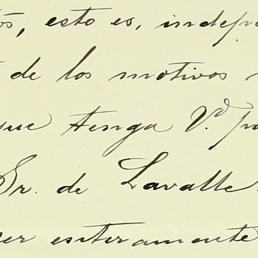 esto es, indepe
de los motivos
que tenga V.d pa
Sr. de Lavalle
ser enteramente